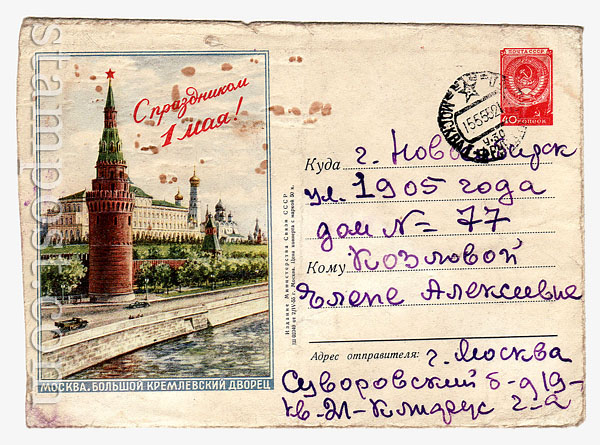 С праздником
1 мая!
ПОЧТА СССР
40 КОПЕЕК
Куда г. Новосибирск
ул. 1905 года
дом № 77
Кому Козловой
Елене Алексеевне
Адрес отправителя: г. Москва
Суворовский б-д 19-
кв-21-
МОСКВА. БОЛЬШОЙ КРЕМЛЕВСКИЙ ДВОРЕЦ
Издание Министерства Связи СССР
stampost.com